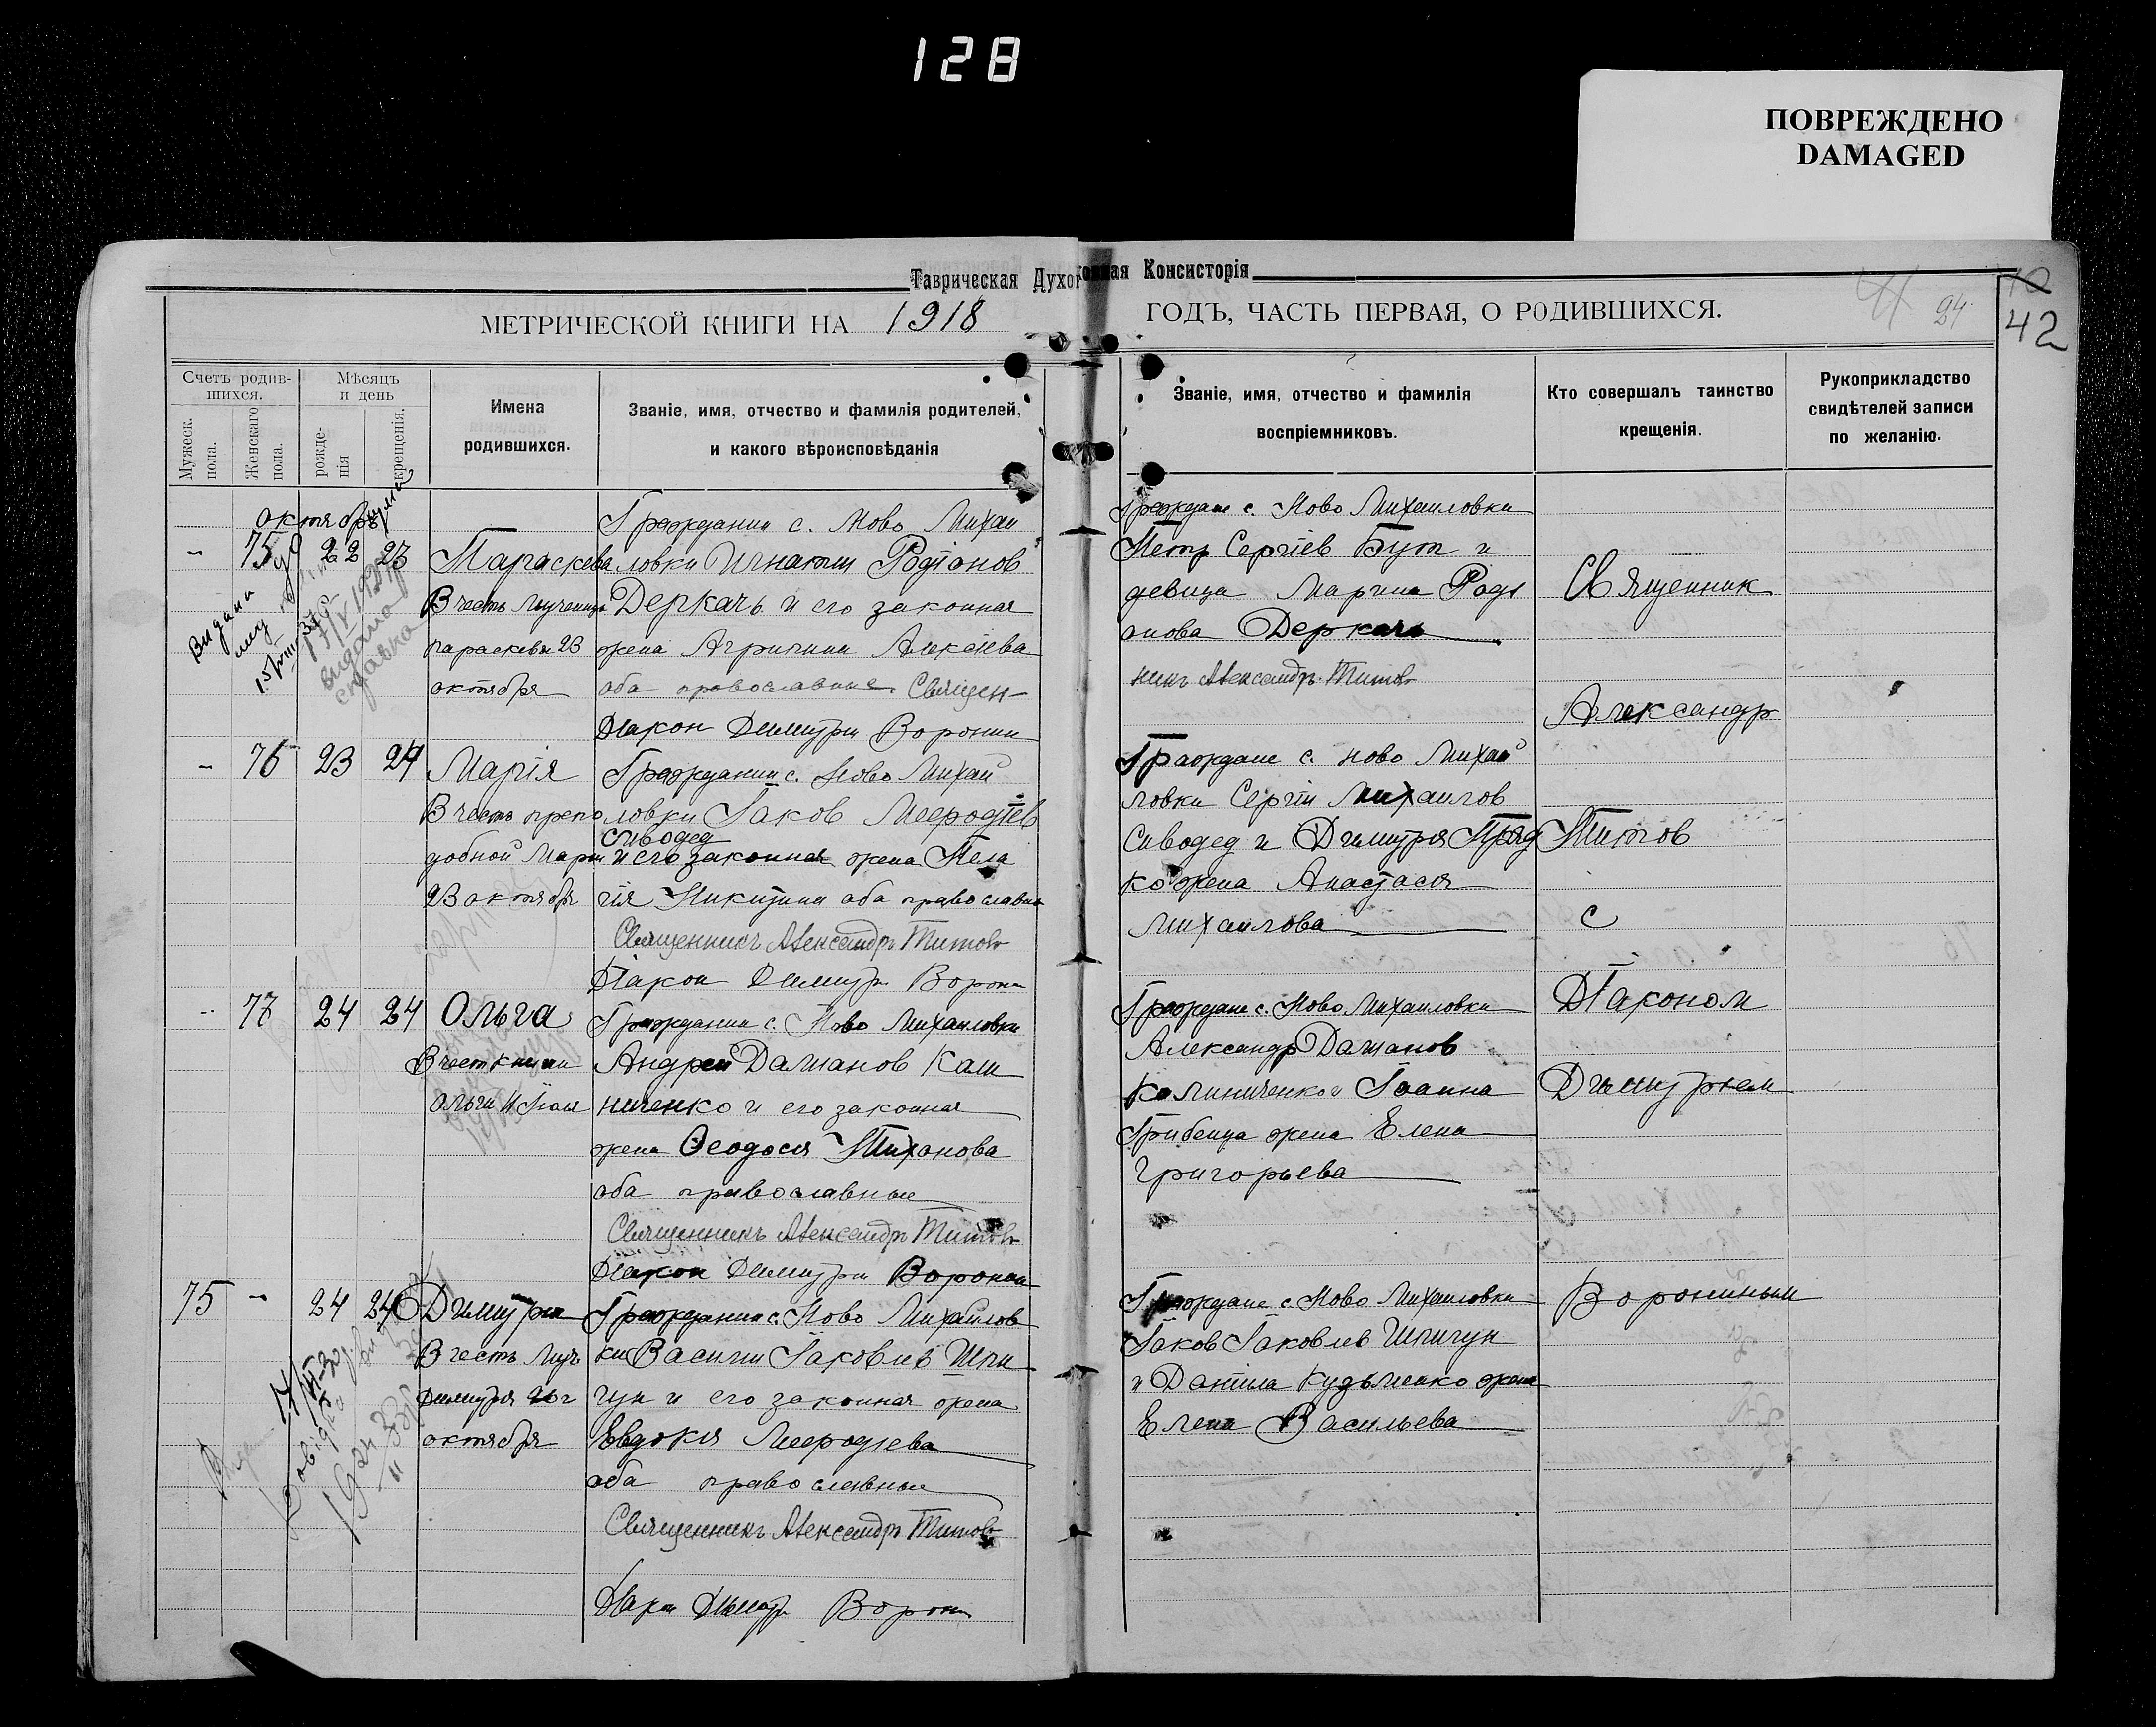 128
ПОВРЕЖДЕНО
DAMAGED
Таврическая Духовная Консисторія
42
24
МЕТРИЧЕСКОЙ КНИГИ НА 1918
ГОДЪ, ЧАСТЬ ПЕРВАЯ, О РОДИВШИХСЯ.
Счетъ родив-
шихся.
Мужеск.
пола.
Женскаго
пола.
Мѣсяцъ
и день
рожде-
нія
крещенія.
Имена
родившихся.
Званіе, имя, отчество и фамилія родителей,
и какого вѣроисповѣданія
Званіе, имя, отчество и фамилія
воспріемниковъ.
Кто совершалъ таинство
крещенія.
Рукоприкладство
свидѣтелей записи
по желанію.
октябрь
- 75 22 23
Параскева
В честь мученицы
параскевы 23
октября
Гражданин с. Ново Михай
ловки Игнатий Родіонов
Деркачь и его законная
жена Агрипина Алексіева
оба православные. Священ-
Діакон Димитри Воронин
Граждане с. Ново Михаиловки
Петр Сергіев Бут и
девица Марина Роді
онова Деркачь
никъ Александръ Титовъ
видана
справка
- 76 23 24
Марія
В честь препо
добной Марии
23 октября
Гражданин с. Ново Михай
ловки Іаков Мефодіев
Сиводед
и его законная жена Пела
гія Никитина оба православны
Священникъ Александръ Титовъ
Діакон Димитри Ворони
Граждане с. Ново Михай
ловки Сергій Михаилов
Сиводед и Димитрия Пряд
ко жена Анастасия
Михаилова
77 24 24
Ольга
В чест княгини
Ольги 11 Іюля
Гражданин с. Ново Михаиловки
Андрей Дамианов Кали
ниченко и его законная
жена Феодосия Тихонова
оба православные
Священникъ Александръ Титовъ
Діакон Димитри Воронин
Граждане с. Ново Михаиловки
Александр Дамианов
Калиниченко и Іоанна
Грибенца жена Елена
Григорьева
75 - 24 24
Димитри
В честь Муч
Димитрия 26г
октября
Гражданин с. Ново Михаилов
ки Василий Іаковлев Шпи
гун и его законная жена
Евдокия Мефодіева
оба православные
Священникъ Александръ Титовъ
Діакон Димитр Ворони
Граждане с. Ново Михаиловки
Іаков Іаковлев Шпигун
и Даніила Кузьменко жена
Елена Васильева
Священник
Александр
Титов
С
Діаконом
Димитрием
Ворониным